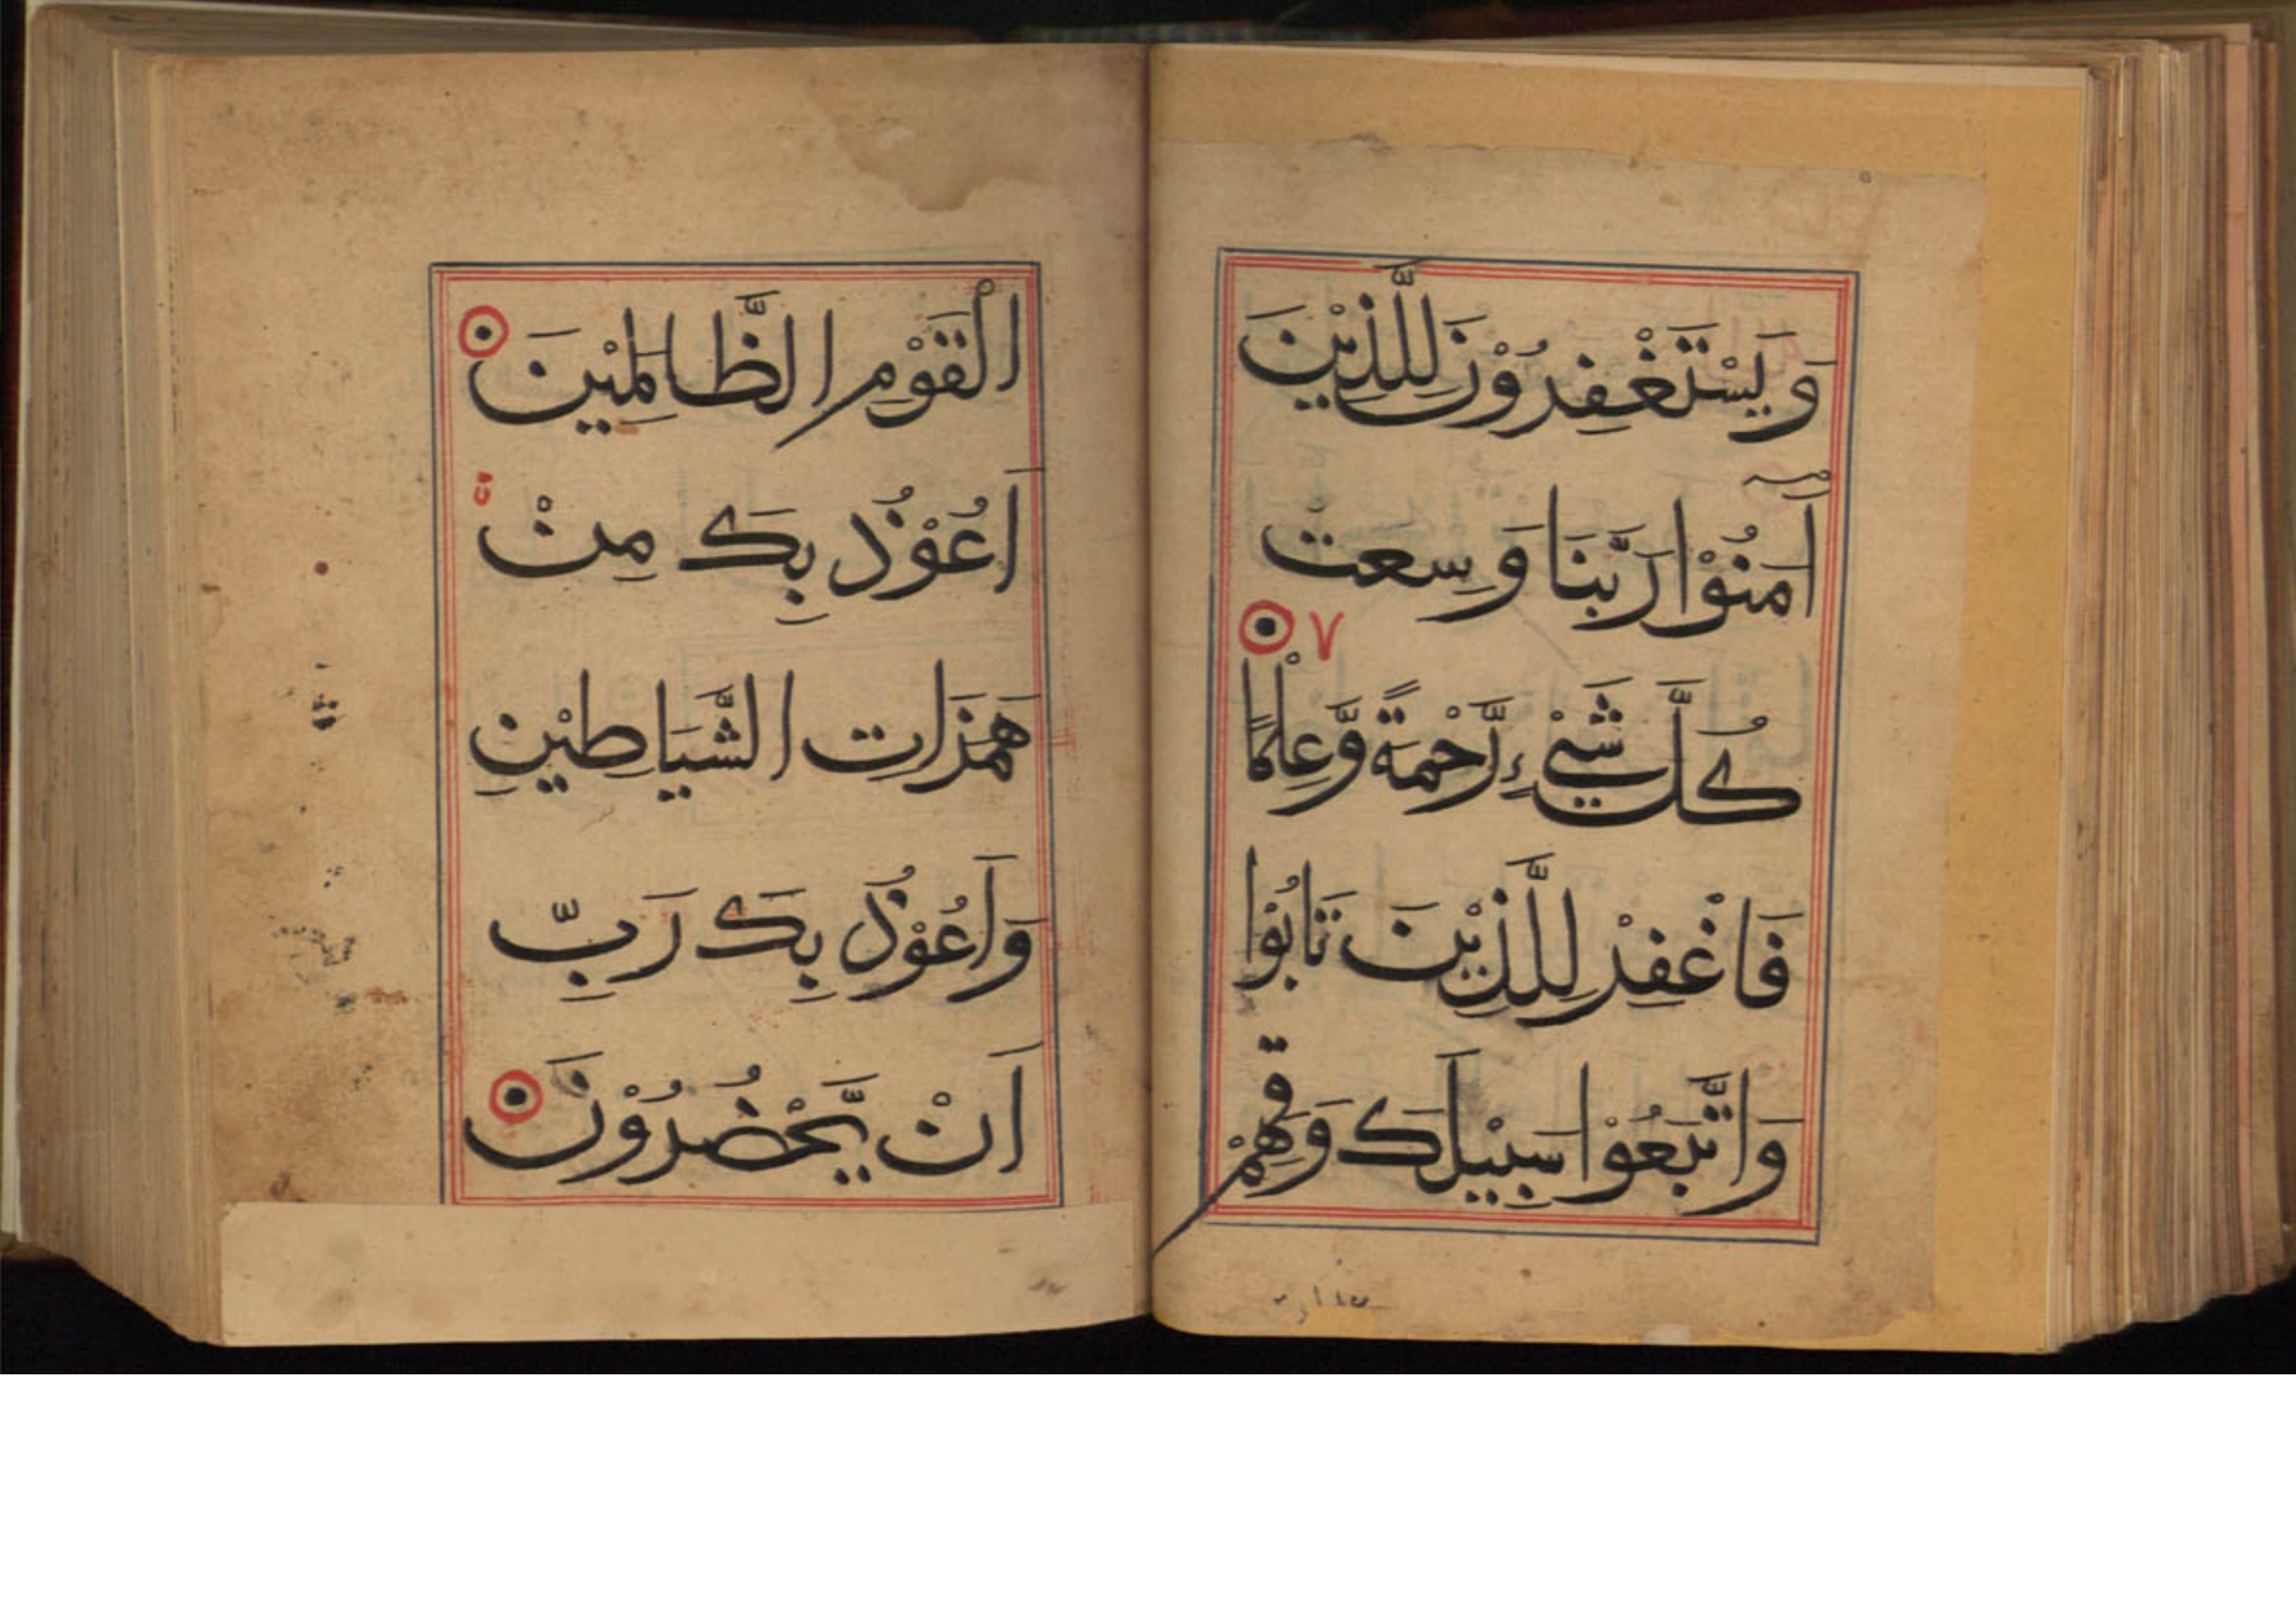 وَيَسْتَغْفِرُوْنَ لِلَّذِيْنَ
اٰمَنُوْا رَبَّنَا وَسِعْتَ
٧
كُلَّ شَيْءٍ رَّحْمَةً وَّعِلْمًا
فَاغْفِرْ لِلَّذِيْنَ تَابُوْا
وَاتَّبَعُوْا سَبِيْلَكَ وَقِهِمْ
الْقَوْمِ الظَّالِمِيْنَ
اَعُوْذُ بِكَ مِنْ
هَمَزَاتِ الشَّيَاطِيْنِ
وَاَعُوْذُ بِكَ رَبِّ
اَنْ يَّحْضُرُوْنَ